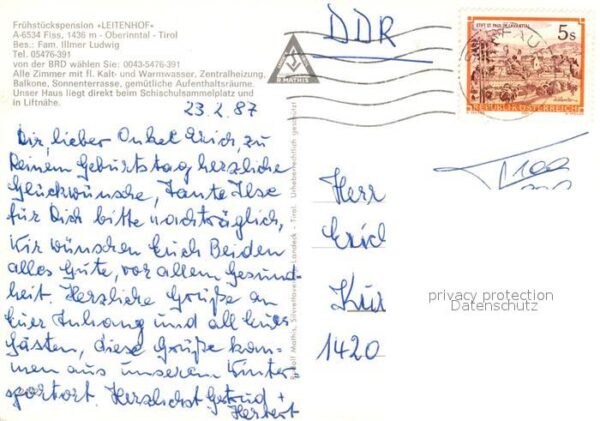 Frühstückspension »LEITENHOF«
A-6534 Fiss, 1436 m - Oberinntal - Tirol
Bes.: Fam. Illmer Ludwig
Tel. 05476-391
von der BRD wählen Sie: 0043-5476-391
Alle Zimmer mit fl. Kalt- und Warmwasser, Zentralheizung,
Balkone, Sonnenterrasse, gemütliche Aufenthaltsräume.
Unser Haus liegt direkt beim Schischulsammelplatz und
in Liftnähe.
23.2.87
Dir, lieber Onkel Erich, zu
Deinem Geburtstag herzliche
Glückwünsche, Tante Ilse
für Dich bitte nachträglich,
Wir wünschen Euch Beiden
alles Gute, vor allem Gesund-
heit. Herzliche Grüße an
Euer Anhang und all Eure
Gästen, diese Grüße kom-
men aus unserem Winter-
sportort. Herzlichst Gertrud +
Herbert
R. MATHIS
Mathis, Landeck - Tirol. Urheberrechtlich geschützt
DDR
STIFT ST. PAUL IM LAVANTTAL
5s
REPUBLIK ÖSTERREICH
Herr
Erich
1420
privacy protection
Datenschutz